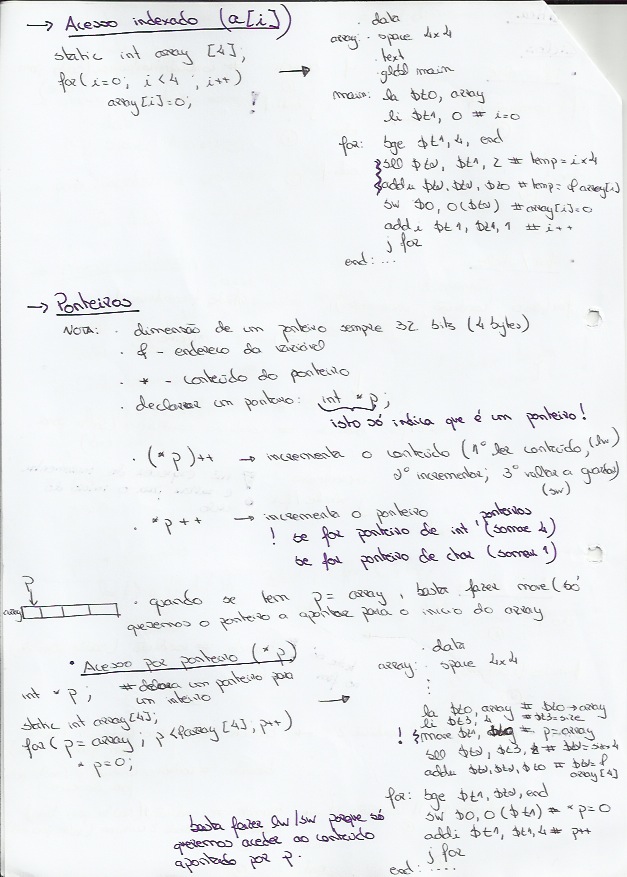 → Acesso indexado (a[i])
static int array [4];
for(i=0; i<4 ; i++)
array[i]=0;
!
→
.data
array: .space 4x4
.text
.globl main
main: la $t0, array
li $t1, 0 # i=0
for: bge $t1, 4, end
sll $t2, $t1, 2 # temp = i x 4
addu $t2, $t2, $t0 # temp = &array[i]
sw $0, 0($t2) # array[i]=0
addi $t1, $t1, 1 # i++
j for
end: ...
→ Ponteiros
NOTA: . dimensão de um ponteiro sempre 32 bits (4 bytes)
. & - endereço da variável
. * - conteúdo do ponteiro
. declarar um ponteiro: int * p;
isto só indica que é um ponteiro!
. (*p)++ → incrementa o conteúdo (1º ler conteúdo, (lw)
2º incrementar; 3º voltar a guardar)
(sw)
. *p++ → incrementa o ponteiro
ponteiros
! se for ponteiro de int (somar 4)
se for ponteiro de char (somar 1)
p
array
. quando se tem p = array, basta fazer move (só
queremos o ponteiro a apontar para o inicio do array
• Acesso por ponteiro (*p)
int * p; # declara um ponteiro para
um inteiro
static int array[4];
for( p = array ; p < &array[4], p++)
* p=0;
→
.data
array: .space 4x4
:
la $t0, array # $t0 → array
li $t3, 4 # $t3=size
! move $t1, # p=array
sll $t2, $t3, 2
addu $t2, $t2, $t0 # $t2 = &
array[4]
for: bge $t1, $t2, end
sw $0, 0($t1) # *p=0
addi $t1, $t1, 4 # p++
j for
end: ....
basta fazer lw/sw porque só
queremos aceder ao conteúdo
apontado por p.